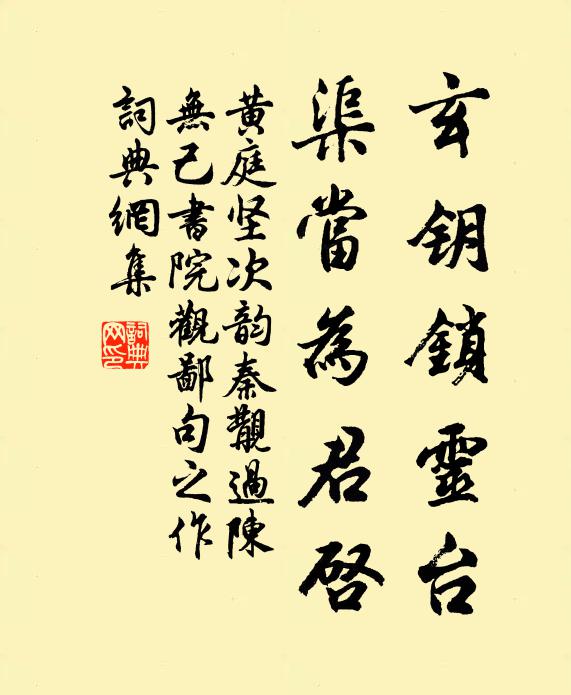 玄钥鎖靈台
渠當為君啓
黃庭坚次韵秦觏過陳
無己書院觀鄙句之作
詞典網集
詞典网印